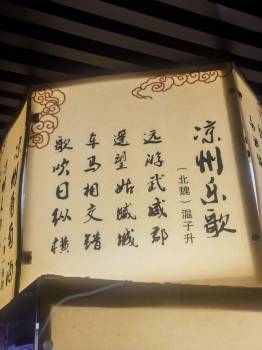 凉州乐歌
（北魏）温子升
远游武威郡
遥望姑臧城
车马相交错
歌吹日纵横